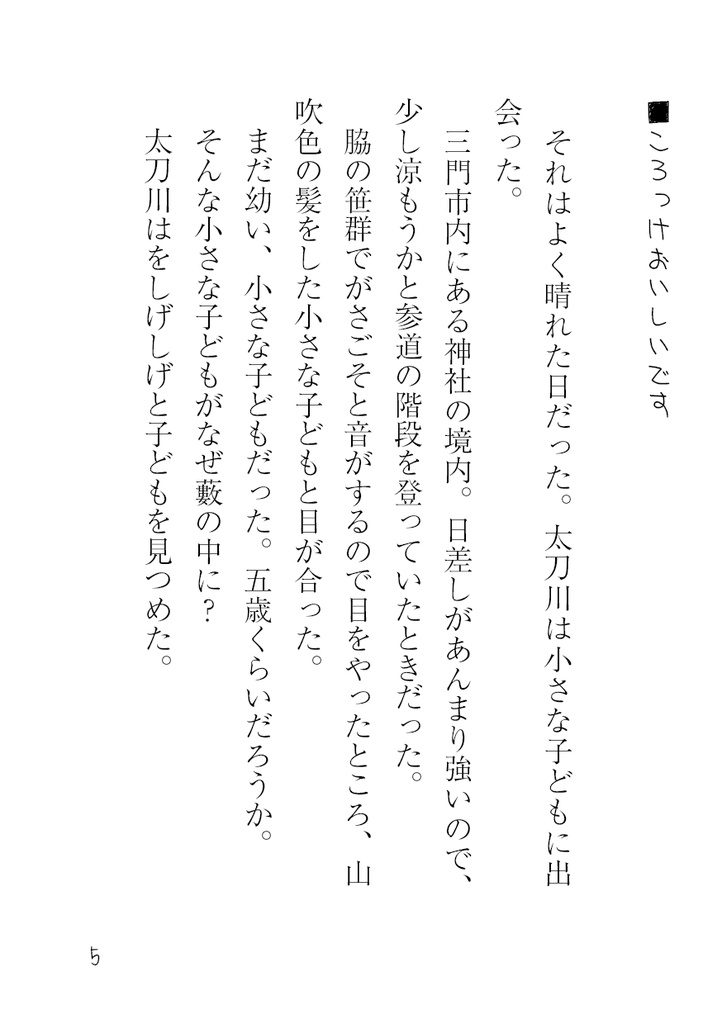 ■ころっけおいしいです
それはよく晴れた日だった。太刀川は小さな子どもに出
会った。
三門市内にある神社の境内。日差しがあんまり強いので、
少し涼もうかと参道の階段を登っていたときだった。
脇の笹群でがさごそと音がするので目をやったところ、山
吹色の髪をした小さな子どもと目が合った。
まだ幼い、小さな子どもだった。五歳くらいだろうか。
そんな小さな子どもがなぜ藪の中に?
太刀川はをしげしげと子どもを見つめた。
5